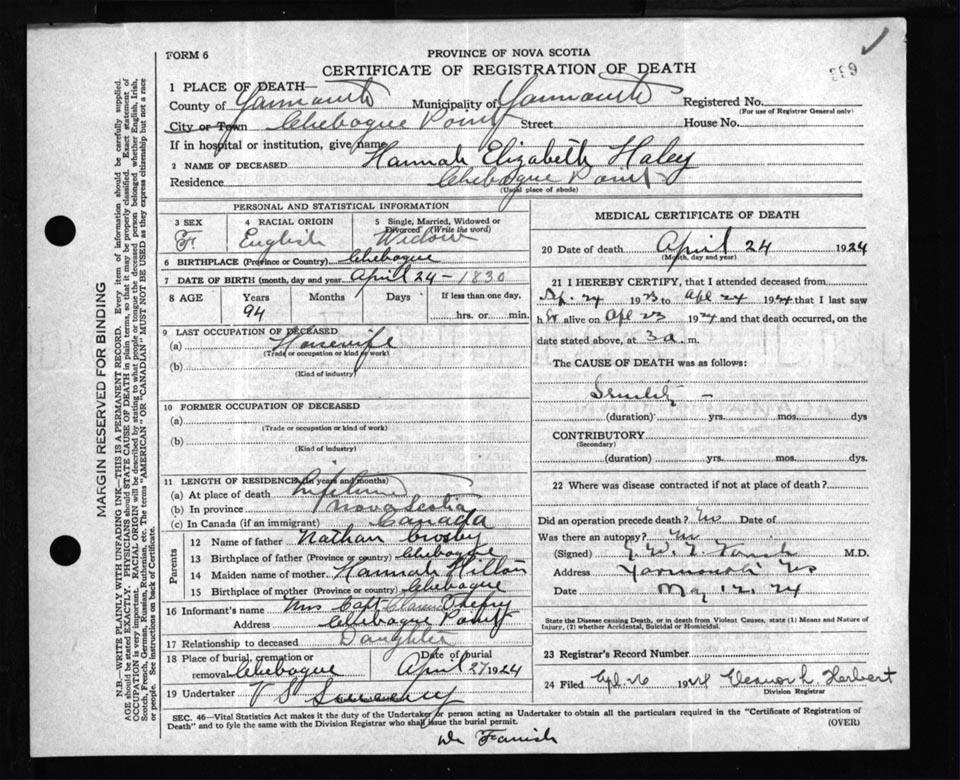 FORM 6
PROVINCE OF NOVA SCOTIA
CERTIFICATE OF REGISTRATION OF DEATH
1 PLACE OF DEATH—
County of Yarmouth Municipality of Yarmouth Registered No.
(For use of Registrar General only)
City or Town Chebogue Point Street House No.
If in hospital or institution, give name
2 NAME OF DECEASED Hannah Elizabeth Haley
Residence Chebogue Point
(Usual place of abode)
PERSONAL AND STATISTICAL INFORMATION
3 SEX F. 4 RACIAL ORIGIN English 5 Single, Married, Widowed or Divorced (Write the word) Widow
6 BIRTHPLACE (Province or Country) Chebogue
7 DATE OF BIRTH (month, day and year) April 24 - 1830
8 AGE Years 94 Months Days If less than one day, hrs. or min.
9 LAST OCCUPATION OF DECEASED
(a) Housewife
(Trade or occupation or kind of work)
(b)
(Kind of industry)
10 FORMER OCCUPATION OF DECEASED
(a)
(Trade or occupation or kind of work)
(b)
(Kind of industry)
11 LENGTH OF RESIDENCE (in years and months)
(a) At place of death Lifetime
(b) In province Nova Scotia
(c) In Canada (if an immigrant) Canada
Parents
12 Name of father Nathan Crosby
13 Birthplace of father (Province or country) Chebogue
14 Maiden name of mother Hannah Hilton
15 Birthplace of mother (Province or country) Chebogue
16 Informant's name Mrs Capt
Address Chebogue Point
17 Relationship to deceased Daughter
18 Place of burial, cremation or removal Chebogue Date of burial April 27 1924
19 Undertaker V S Sweeny
MEDICAL CERTIFICATE OF DEATH
20 Date of death April 24 1924
(Month, day and year)
21 I HEREBY CERTIFY, that I attended deceased from
24 1923 to Apl 24 1924 that I last saw
her alive on Apl 23 1924 and that death occurred, on the
date stated above, at 3 a. m.
The CAUSE OF DEATH was as follows:
Senility -
(duration) yrs. mos. dys
CONTRIBUTORY
(Secondary)
(duration) yrs. mos. dys.
22 Where was disease contracted if not at place of death?
Did an operation precede death? No Date of
Was there an autopsy? No
(Signed) M.D.
Address Yarmouth NS
Date May 12, 24
State the Disease causing Death, or in death from Violent Causes, state (1) Means and Nature of Injury, (2) whether Accidental, Suicidal or Homicidal.
23 Registrar's Record Number
24 Filed Apl 26 1924 Herbert
Division Registrar
SEC. 46—Vital Statistics Act makes it the duty of the Undertaker or person acting as Undertaker to obtain all the particulars required in the "Certificate of Registration of Death" and to fyle the same with the Division Registrar who shall issue the burial permit.
(OVER)
Dr Farish
MARGIN RESERVED FOR BINDING
N.B.—WRITE PLAINLY WITH UNFADING INK—THIS IS A PERMANENT RECORD. Every item of information should be carefully supplied.
AGE should be stated EXACTLY. PHYSICIANS should STATE CAUSE OF DEATH in plain terms, so that it may be properly classified. Exact statement of
OCCUPATION is very important. RACIAL ORIGIN will be described by stating to what people or tongue the deceased person belonged whether English, Irish,
Scotch, French, German, Russian, Ruthenian, etc. The terms "AMERICAN" OR "CANADIAN" MUST NOT BE USED as they express citizenship but not a race
or people. See instructions on back of Certificate.